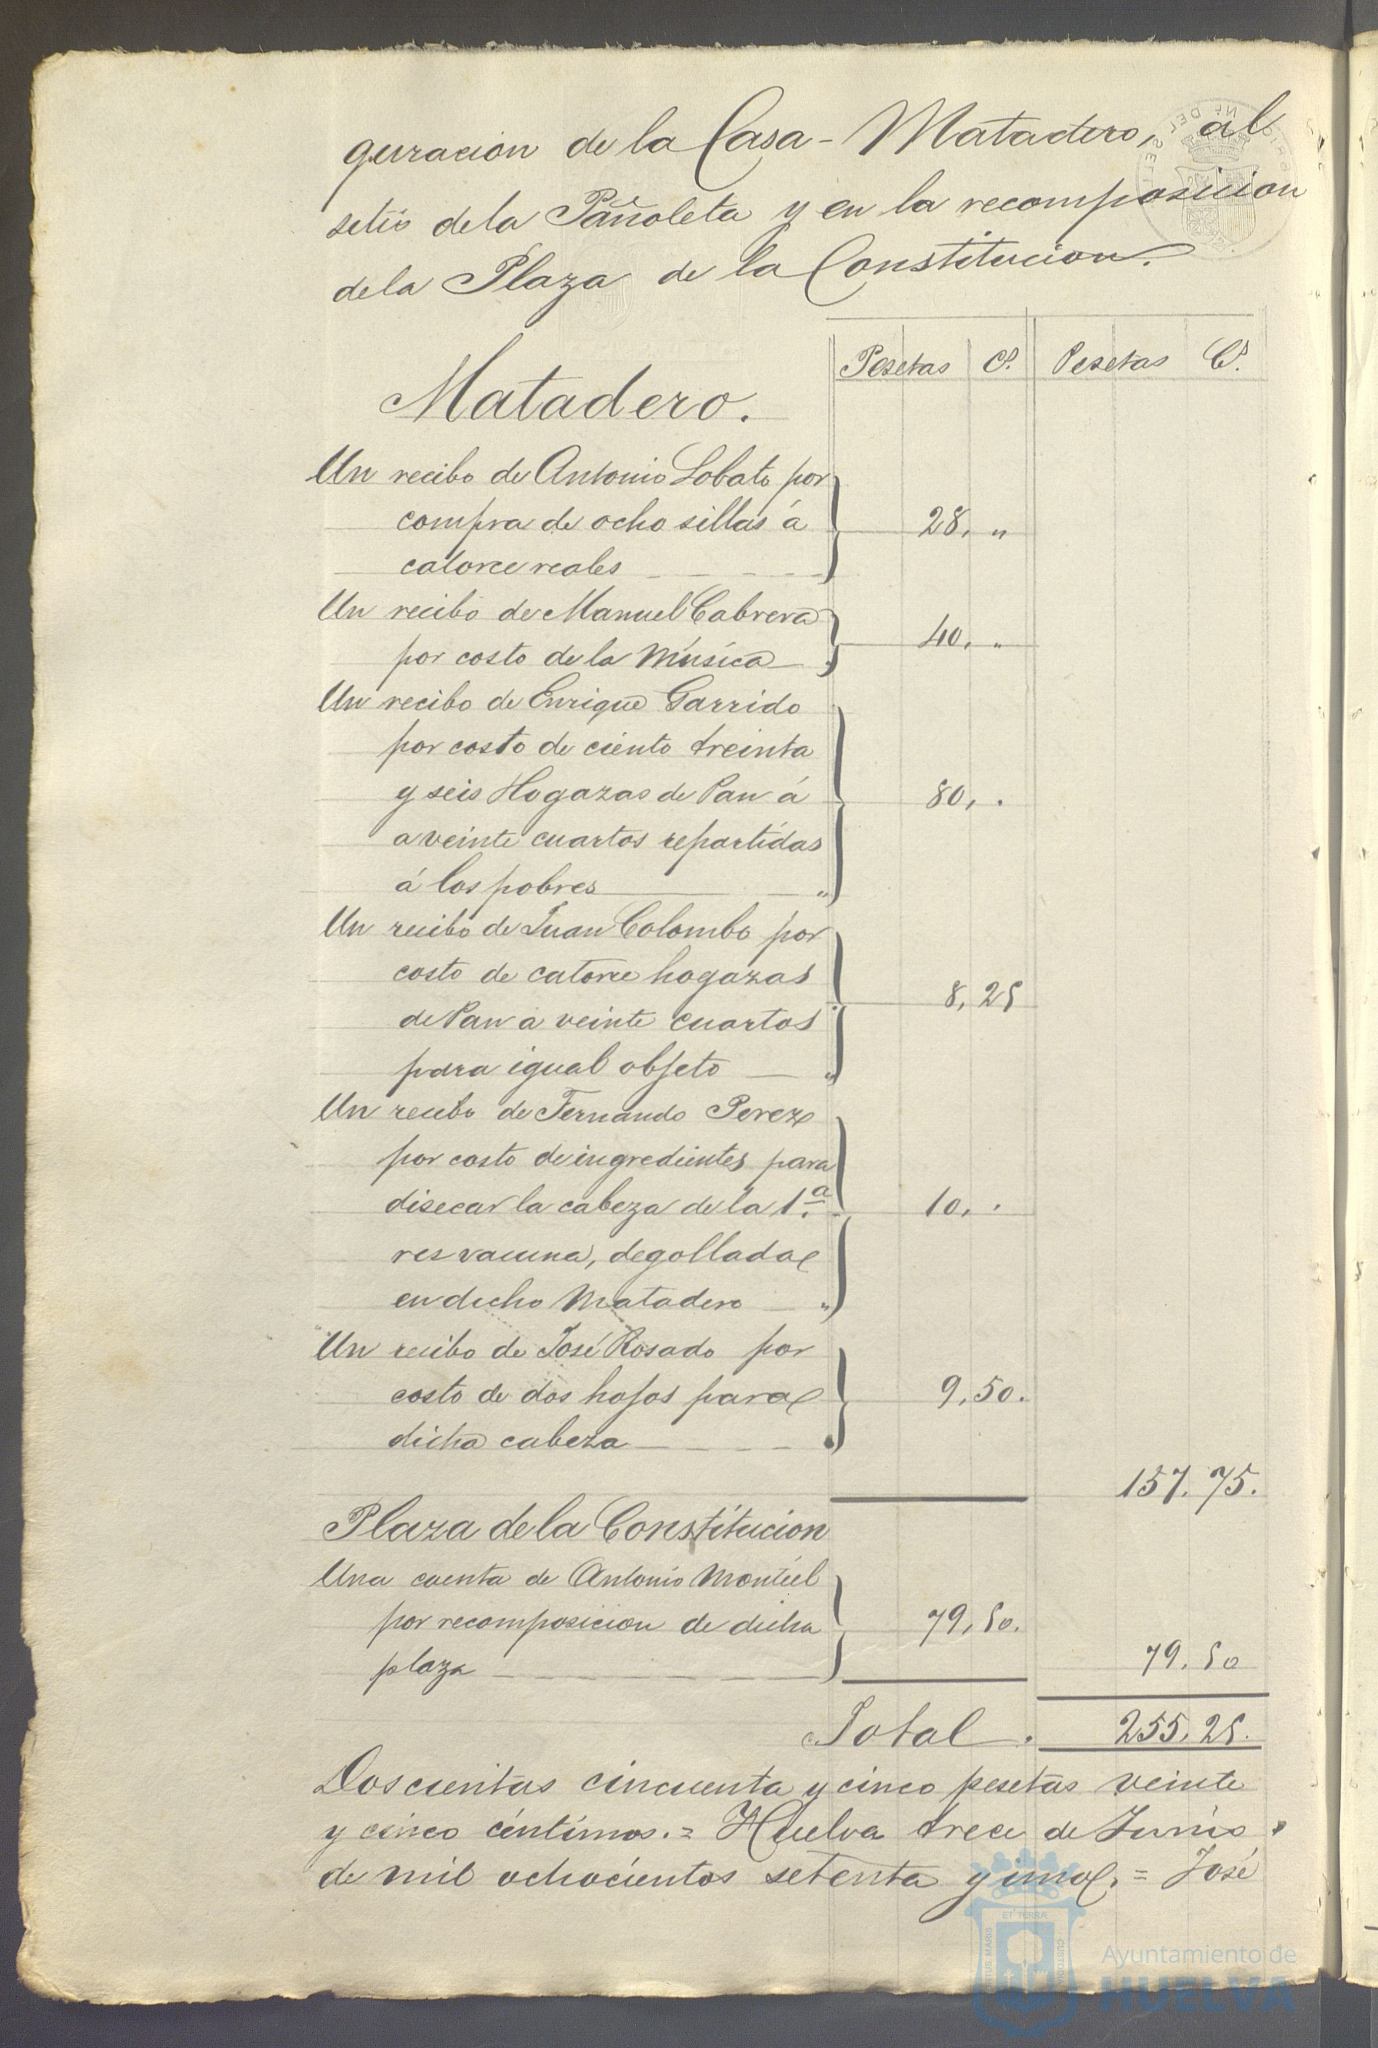 guracion de la Casa-Matadero, al
setio de la Pañoleta y en la recomposicion
de la Plaza de la Constitucion.
Pesetas Cs. Pesetas Cs.
Matadero.
Un recibo de Antonio Lobato por
compra de ocho sillas á
catorce reales 28, "
Un recibo de Manuel Cabrera
por costo de la Música 40, "
Un recibo de Enrique Garrido
por costo de ciento treinta
y seis Hogazas de Pan á
a veinte cuartos repartidas
á los pobres " 80, .
Un recibo de Juan Colombo por
costo de catorce hogazas
de Pan a veinte cuartos
para igual objeto " 8,25
Un recibo de Fernando Perez
por costo de ingredientes para
disecar la cabeza de la 1.ª
res vacuna, degollada
en dicho Matadero " 10, .
Un recibo de José Rosado por
costo de dos hojos para
dicha cabeza 9,50.
157.75.
Plaza de la Constitucion
Una cuenta de Antonio Montiel
por recomposicion de dicha
plaza 79,50. 79.50
Total. 255.25.
Doscientas cincuenta y cinco pesetas veinte
y cinco céntimos.= Huelva trece de Junio
de mil ochocientos setenta y uno.= José
Ayuntamiento de
HUELVA